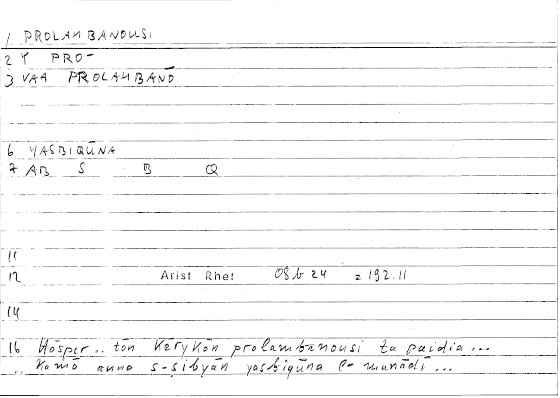 1 PROLAMBANOUSI
2 Y PRO-
3 VAA PROLAMBANŌ
6 YASBIQŪNA
7 AB S B Q
11
12 Arist Rhet 08b24 = 192.11
14
16 Hōsper .. tōn kērykōn prolambanousi ta paidia ...
.. kamā anna s-ṣibyān yasbiqūna l- munādī ...